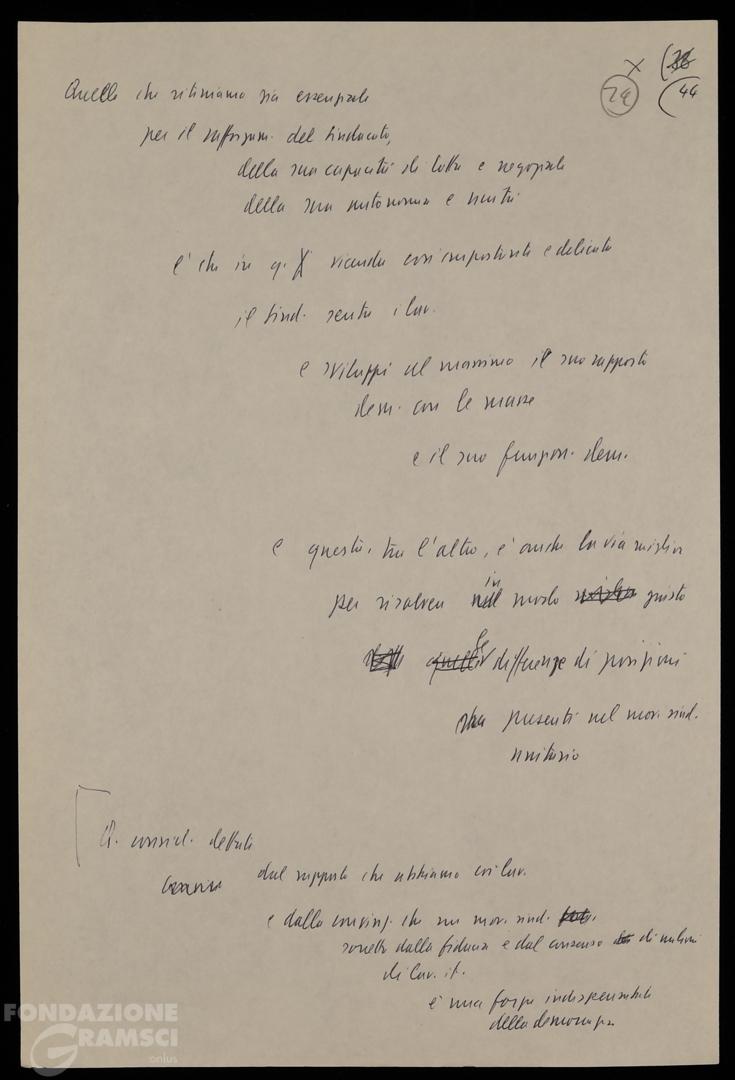 X (38
24 (44
Quello che riteniamo sia essenziale
per il rafforzam. del sindacato,
della sua capacità di lotta e negoziale
della sua autonomia e unità
è che in q. vicenda così importante e delicata
il sind. senta i lav.
e sviluppi al massimo il suo rapporto
dem. con le masse
e il suo funzion. dem.
e questa, tra l'altro, è anche la via miglior
per risolvere in modo giusto
le differenze di posizioni
presenti nel mov. sind.
unitario
Q. consid. dettate
dal rapporto che abbiamo coi lav.
e dalla convinz. che un mov. sind.
sorretto dalla fiducia e dal consenso di milioni
di lav. it.
è una forza indispensabile
della democrazia
FONDAZIONE
GRAMSCI
onlus